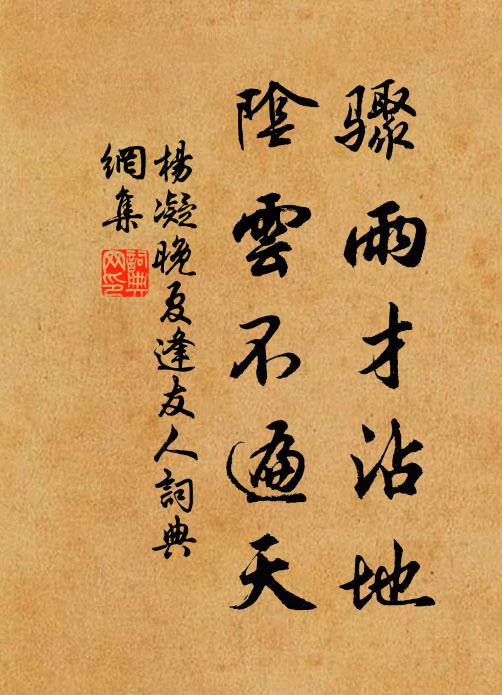 骤雨才沾地
陰雲不遍天
楊凝晚夏逢友人詞典
網集
詞典
网印